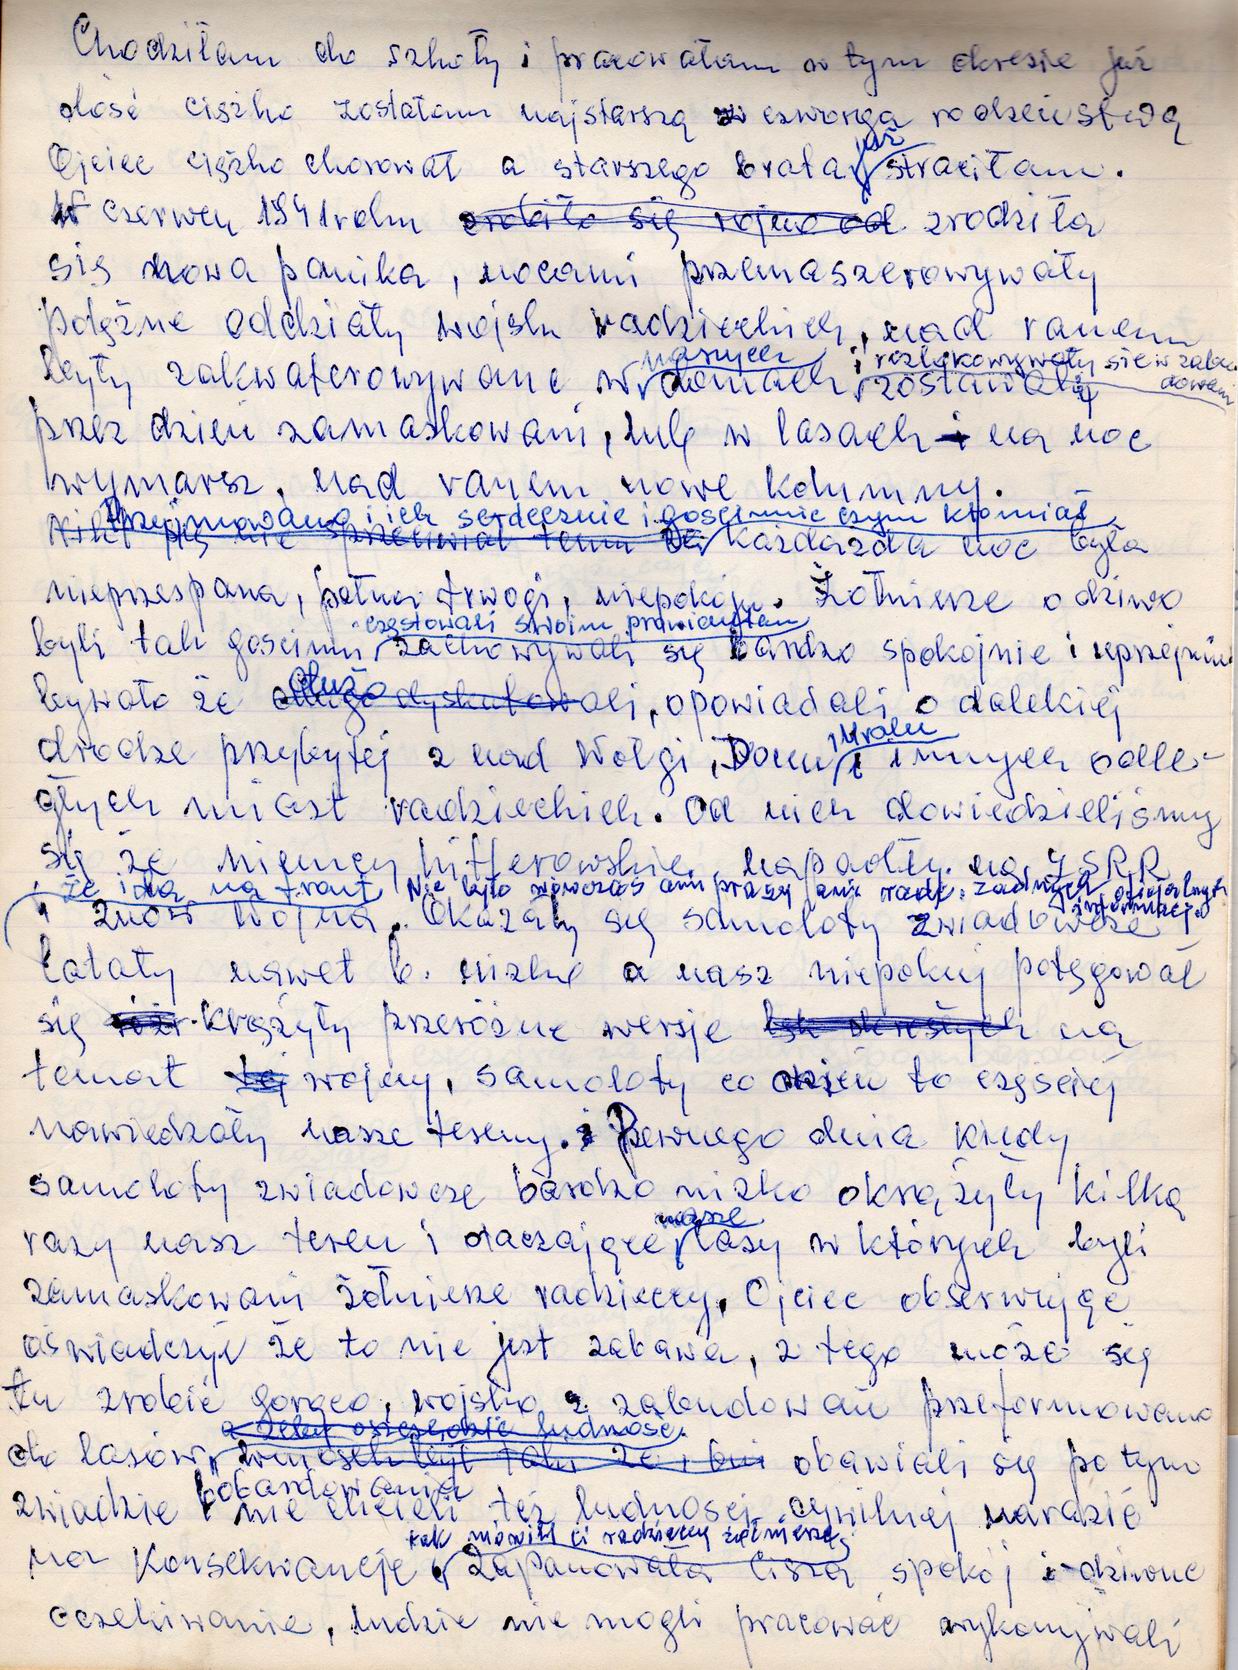 Chodziłam do szkoły i pracowałam w tym okresie już
dość ciężko zostałam najstarszą z czworga rodzeństwa
już
Ojciec ciężko chorował a starszego brata straciłam.
W czerwcu 1941 roku zrobiło się wojno od zrodziła
się nowa panika, nocami przemaszerowywały
potężne oddziały wojsk radzieckich, nad ranem
naszych i rozlokowywały się w zabu-
dowań
były zakwaterowywane w domach, zostawali
przez dzień zamaskowani, lub w lasach i na noc
wymarsz, nad ranem nowe kolumny.
Przyjmowano ich serdecznie i gościnnie czym kto miał
nikt się nie sprzeciwiał temu każdazda noc była
nieprzespana, pełna trwogi, niepokoju. Żołnierze o dziwo
częstowali swoim prowiantem
byli tak gościnni, zachowywali się bardzo spokojnie i uprzejmie
dużo
bywało że długo dyskutowali, opowiadali o dalekiej
Uralu
drodze przybytej z nad Wołgi, Donu i innych odle-
głych miast radzieckich. Od nich dowiedzieliśmy
się że niemcy hitlerowskie napadły na ZSRR
że idą na front Nie było wówczas ani prasy ani radi. żadnych oficjalnych
informacji
i znów wojna. Okazały się samoloty zwiadowcze
latały nawet b. nizko a nasz niepokój potęgował
się krążyły przeróżne wersje na
temat tej wojny, samoloty co dzień to częściej
nawiedzały nasze tereny. i Pewnego dnia kiedy
samoloty zwiadowcze bardzo nizko okrążyły kilka
nasze
razy nasz teren i otaczające lasy w których byli
zamaskowani żołnierze radzieccy. Ojciec obserwując
oświadczył że to nie jest zabawa, z tego może się
tu zrobić gorąco, wojsko z zabudowań przeformowano
a żeby oszczędzić ludność
do lasów, wniosek był taki że i oni obawiali się po tym
bobardowania
zwiadzie i nie chcieli też ludności cywilnej narazić
tak mówili ci radzieccy żołnierze
na konsekwancje, Zapanowała cisza spokój i dziwne
oczekiwanie, ludzie nie mogli pracować wykonywali